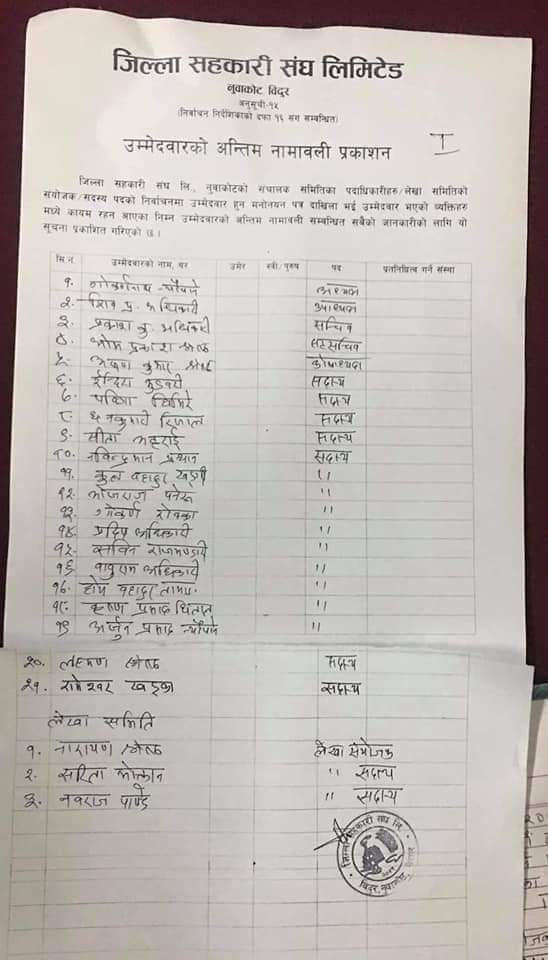 जिल्ला सहकारी संघ लिमिटेड
नुवाकोट विदुर
अनुसूची-१५
(निर्वाचन निर्देशिकाको दफा १६ संग सम्बन्धित)
I
उम्मेदवारको अन्तिम नामावली प्रकाशन
जिल्ला सहकारी संघ लि., नुवाकोटको संचालक समितिका पदाधिकारीहरु/लेखा समितिको
संयोजक/सदस्य पदको निर्वाचनमा उम्मेदवार हुन मनोनयन पत्र दाखिला भई उम्मेदवार भएको व्यक्तिहरु
मध्ये कायम रहन आएका निम्न उम्मेदवारको अन्तिम नामावली सम्बन्धित सबैको जानकारीको लागि यो
सूचना प्रकाशित गरिएको छ ।
सि.न उम्मेदवारको नाम, थर उमेर स्त्री/पुरुष पद प्रतिनिधित्व गर्ने संस्था
१. अध्यक्ष
२. शिव प्र. अधिकारी उपाध्यक्ष
३. प्रकाश कु. अधिकारी सचिव
४. ओम प्रकाश श्रेष्ठ सहसचिव
५. कुमार श्रेष्ठ कोषाध्यक्ष
६. ईन्दिरा सदस्य
७. पवित्रा घिमिरे सदस्य
८. धनकुमारी रिजाल सदस्य
९. सीता भट्टराई सदस्य
१०. नविन्द्रमान प्रधान सदस्य
११. कुल बहादुर खड्गी ''
१२. भोजराज पनेरू ''
१३. गोकर्ण रोक्का ''
१४. प्रदिप अधिकारी ''
१५. सचिन राजभण्डारी ''
१६. बाबुराम अधिकारी ''
१७. होम बहादुर तामाङ ''
१८. कृष्ण प्रसाद धिताल ''
१९. अर्जुन प्रसाद न्यौपाने ''
२०. लक्ष्मण श्रेष्ठ सदस्य
२१. रामेश्वर खड्का सदस्य
लेखा समिति
१. नारायण श्रेष्ठ लेखा संयोजक
२. सरिता '' सदस्य
३. नवराज पाण्डे '' सदस्य
जिल्ला सहकारी संघ लि.
विदुर, नुवाकोट, नेपाल